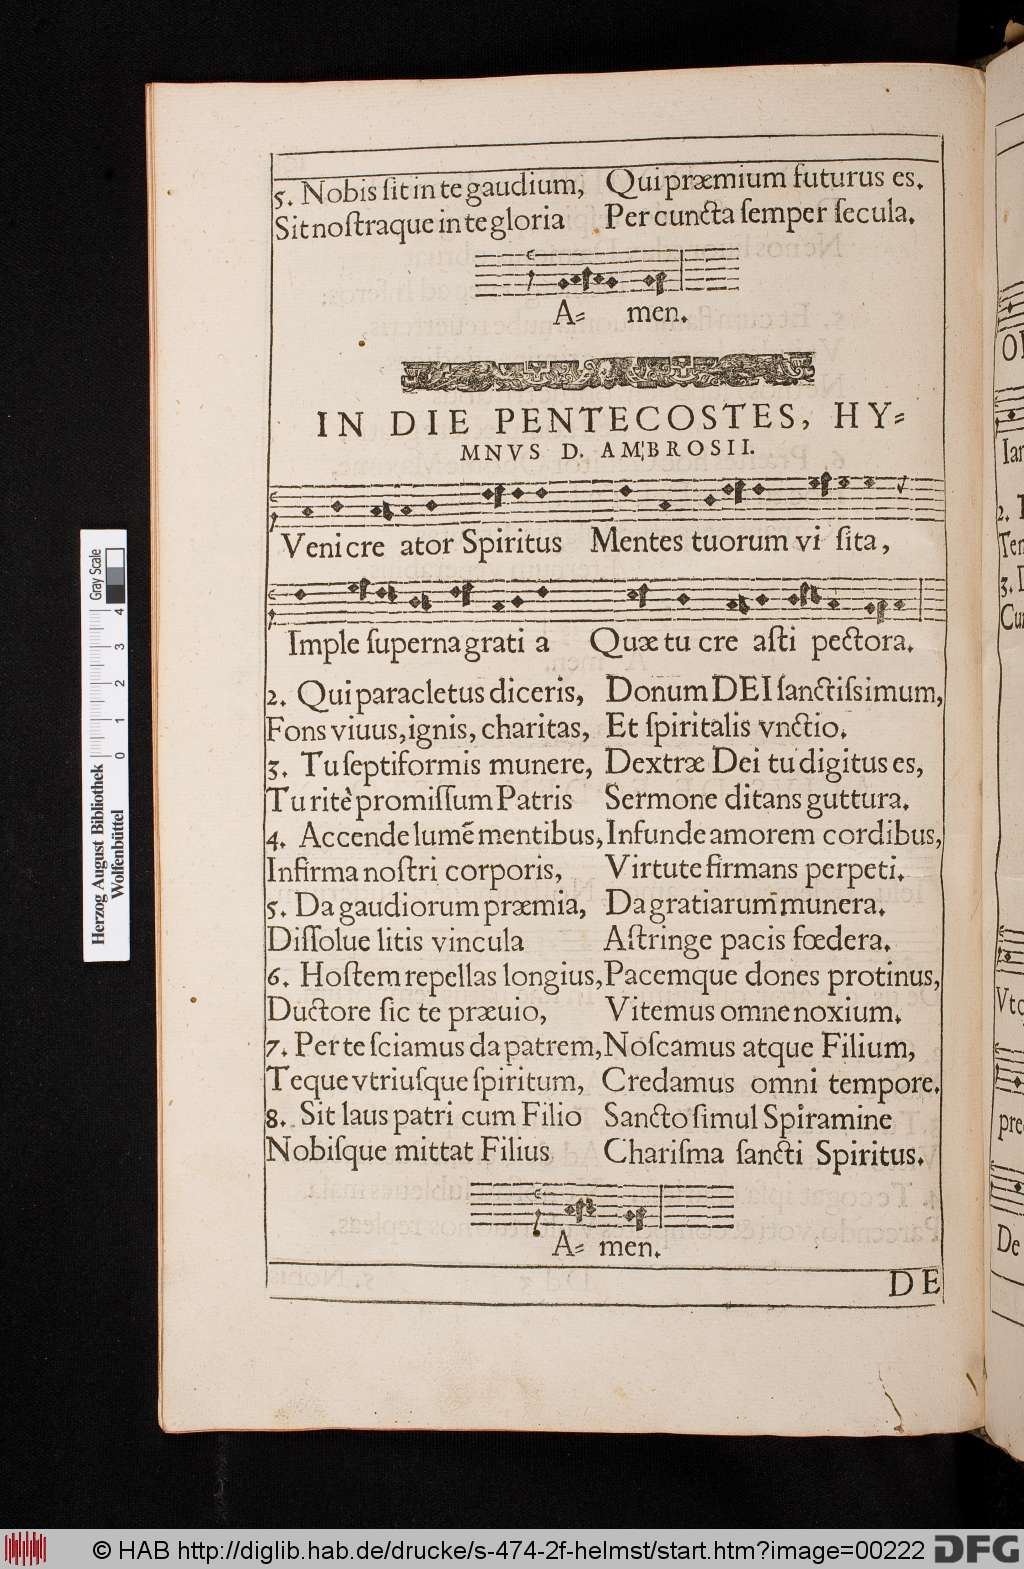 5. Nobis ſit in te gaudium, Qui præmium futurus es.
Sit noſtraque in te gloria Per cuncta ſemper ſecula.
A= men.
IN DIE PENTECOSTES, HY=
MNVS D. AMBROSII.
Veni cre ator Spiritus Mentes tuorum vi ſita,
Imple ſuperna grati a Quæ tu cre aſti pectora.
2. Qui paracletus diceris, Donum DEI ſanctiſsimum,
Fons viuus, ignis, charitas, Et ſpiritalis vnctio.
3. Tu ſeptiformis munere, Dextræ Dei tu digitus es,
Tu ritè promiſſum Patris Sermone ditans guttura.
4. Accende lumē mentibus, Infunde amorem cordibus,
Infirma noſtri corporis, Virtute firmans perpeti.
5. Da gaudiorum præmia, Da gratiarum munera.
Diſſolue litis vincula Aſtringe pacis fœdera.
6. Hoſtem repellas longius, Pacemque dones protinus,
Ductore ſic te præuio, Vitemus omne noxium.
7. Per te ſciamus da patrem, Noſcamus atque Filium,
Teque vtriuſque ſpiritum, Credamus omni tempore.
8. Sit laus patri cum Filio Sancto ſimul Spiramine
Nobiſque mittat Filius Chariſma ſancti Spiritus.
A= men.
DE
Herzog August Bibliothek
Wolfenbüttel
0 1 2 3 4
Gray Scale
Iar
2.
Ter
3.
Cu
Vtq
pre
De
© HAB http://diglib.hab.de/drucke/s-474-2f-helmst/start.htm?image=00222
DFG